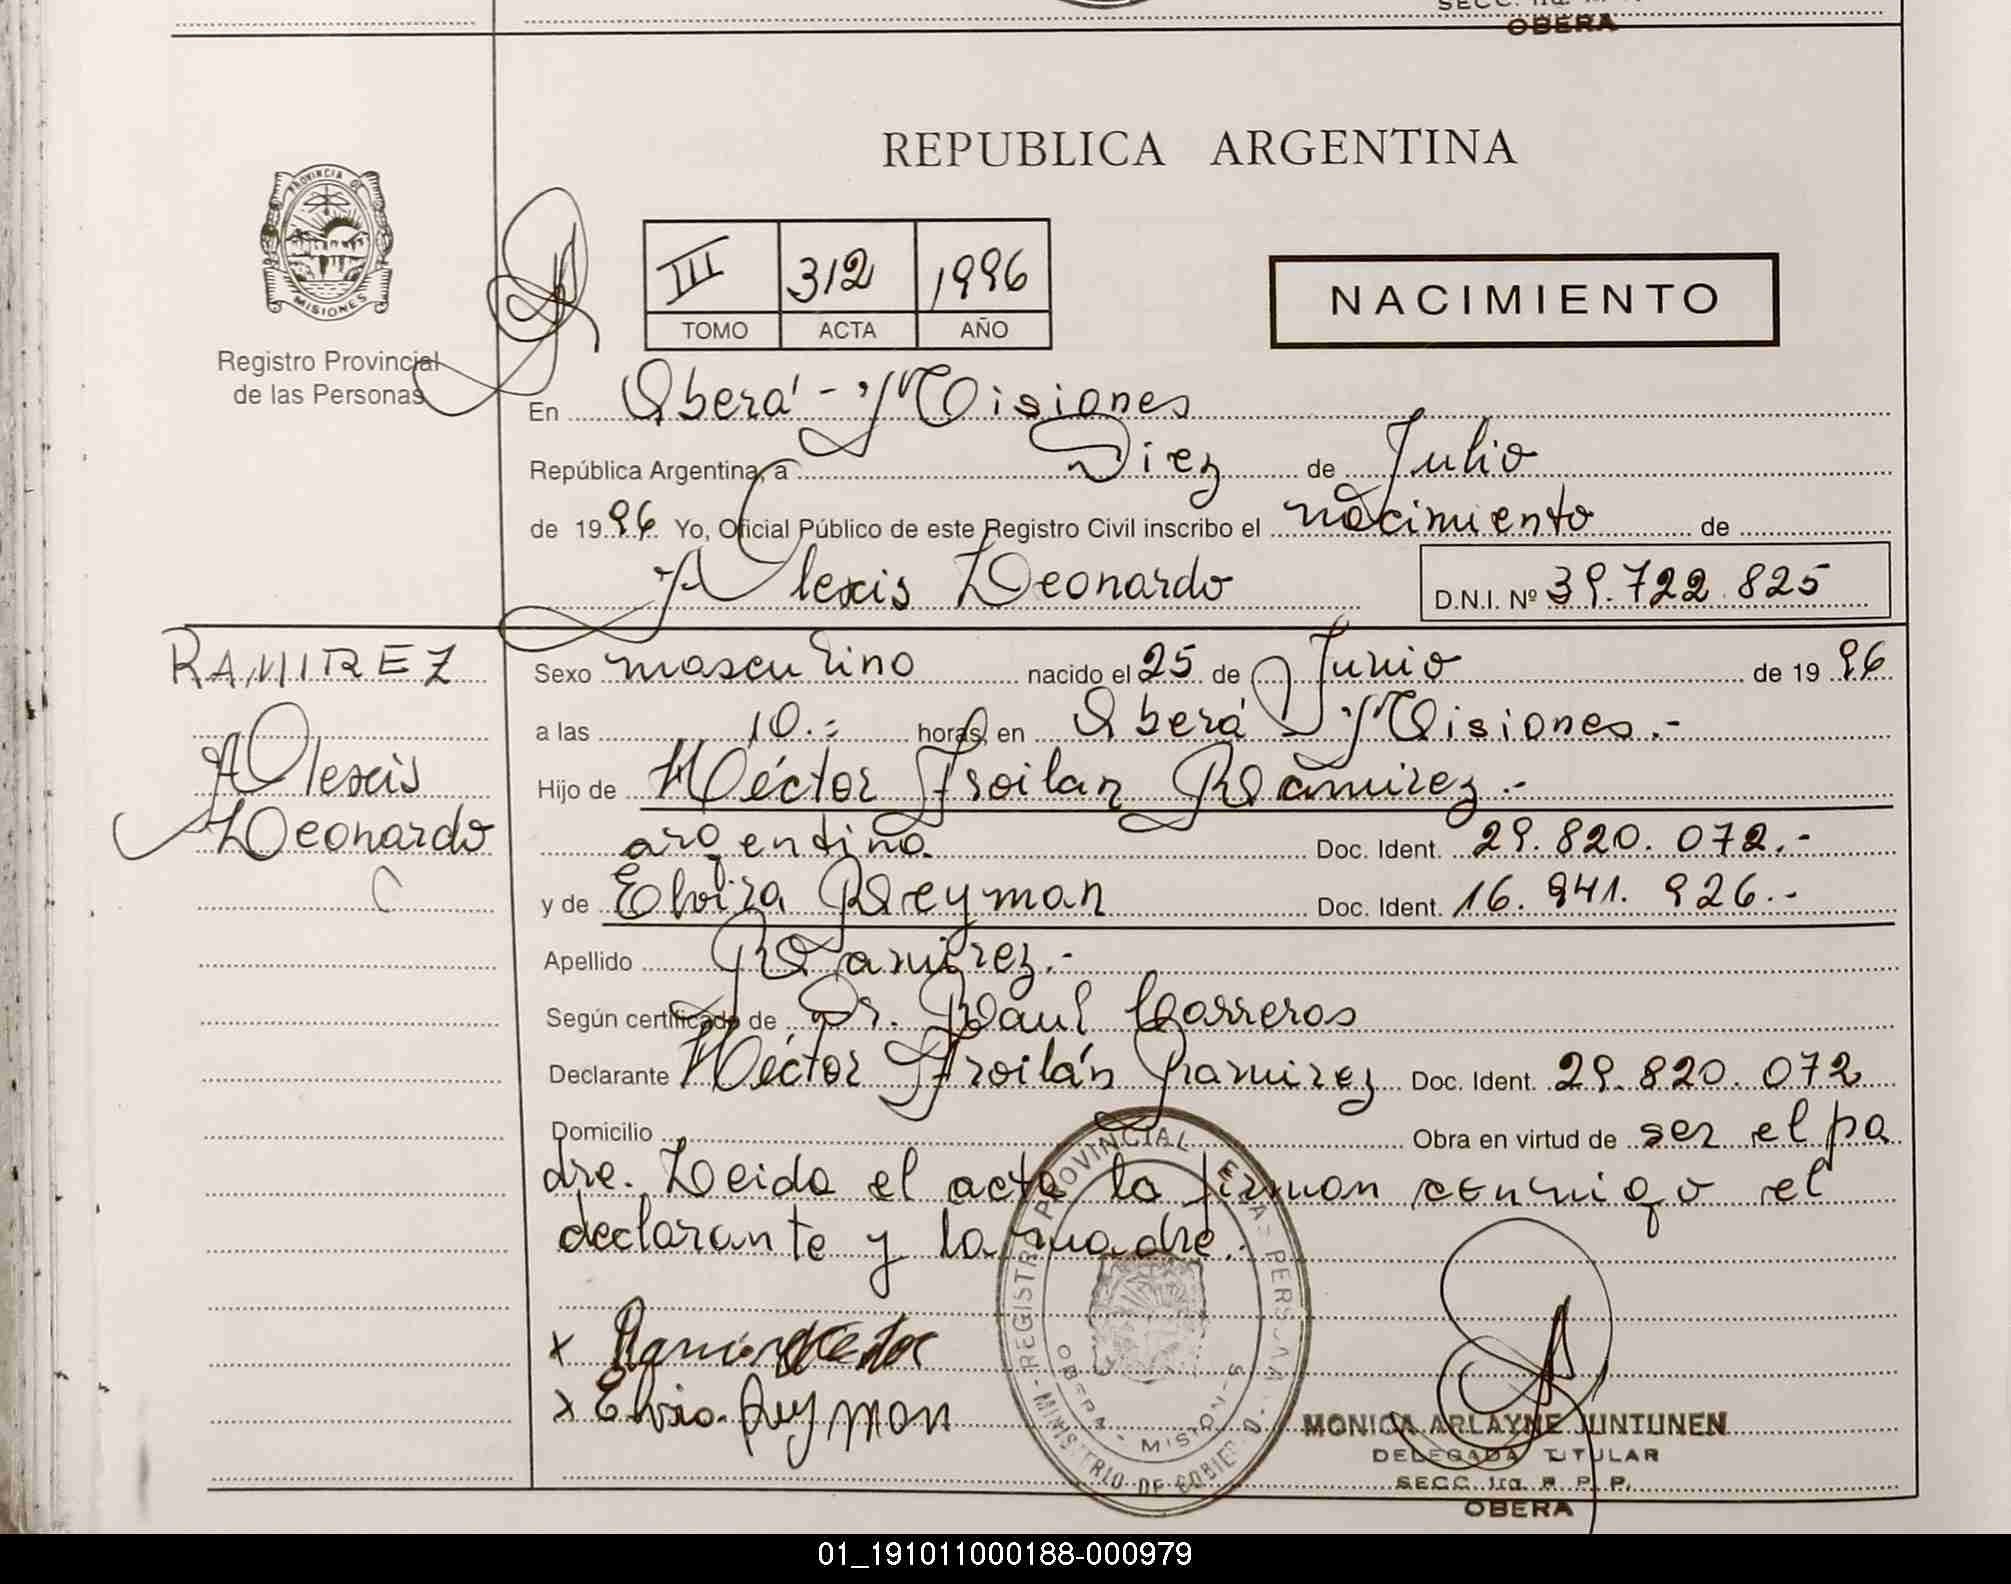 SECC. 1ra.
OBERA
REPUBLICA ARGENTINA
PROVINCIA DE
MISIONES
Registro Provincial
de las Personas
III 312 1996
TOMO ACTA AÑO
NACIMIENTO
En Oberá - Misiones
República Argentina, a Diez de Julio
de 1996 Yo, Oficial Público de este Registro Civil inscribo el nacimiento de
Alexis Leonardo D.N.I. Nº 39.722.825
RAMIREZ
Alexis
Leonardo
Sexo masculino nacido el 25 de Junio de 1996
a las 10.= horas, en Oberá Misiones.-
Hijo de Héctor Froilan Ramirez.-
argentino Doc. Ident. 29.820.072.-
y de Elvira Reyman Doc. Ident. 16.941.926.-
Apellido Ramirez.-
Según certificado de Dr. Raul Carreras
Declarante Héctor Froilán Ramirez Doc. Ident. 29.820.072
Domicilio Obra en virtud de ser el pa
dre. Leida el acta la firman conmigo el
declarante y la madre.-
x Ramirez Hector
x Elvira Reyman
REGISTRO PROVINCIAL DE LAS PERSONAS
MINISTERIO DE GOBIERNO
OBERA - MISIONES
MONICA ARLAYNE JUNTUNEN
DELEGADA TITULAR
SECC. 1ra. R. P. P.
OBERA
01_191011000188-000979